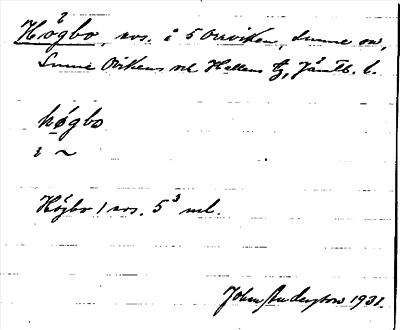 Högbo, nos. i 5 Orrviken, Sunne sn,
Sunne Ovikens och Hallens tg, Jämtl. l.
högbo
i ~
Högbo / nos. 5³ ml.
John Anderson 1931.